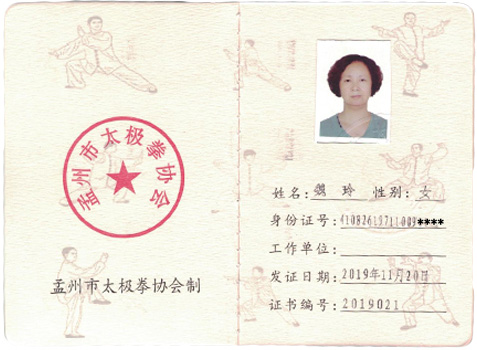 孟州市太极拳协会
孟州市太极拳协会制
姓名: 魏 玲 性别: 女
身份证号: 41082619711009****
工作单位:
发证日期: 2019年11月20日
证书编号: 2019021